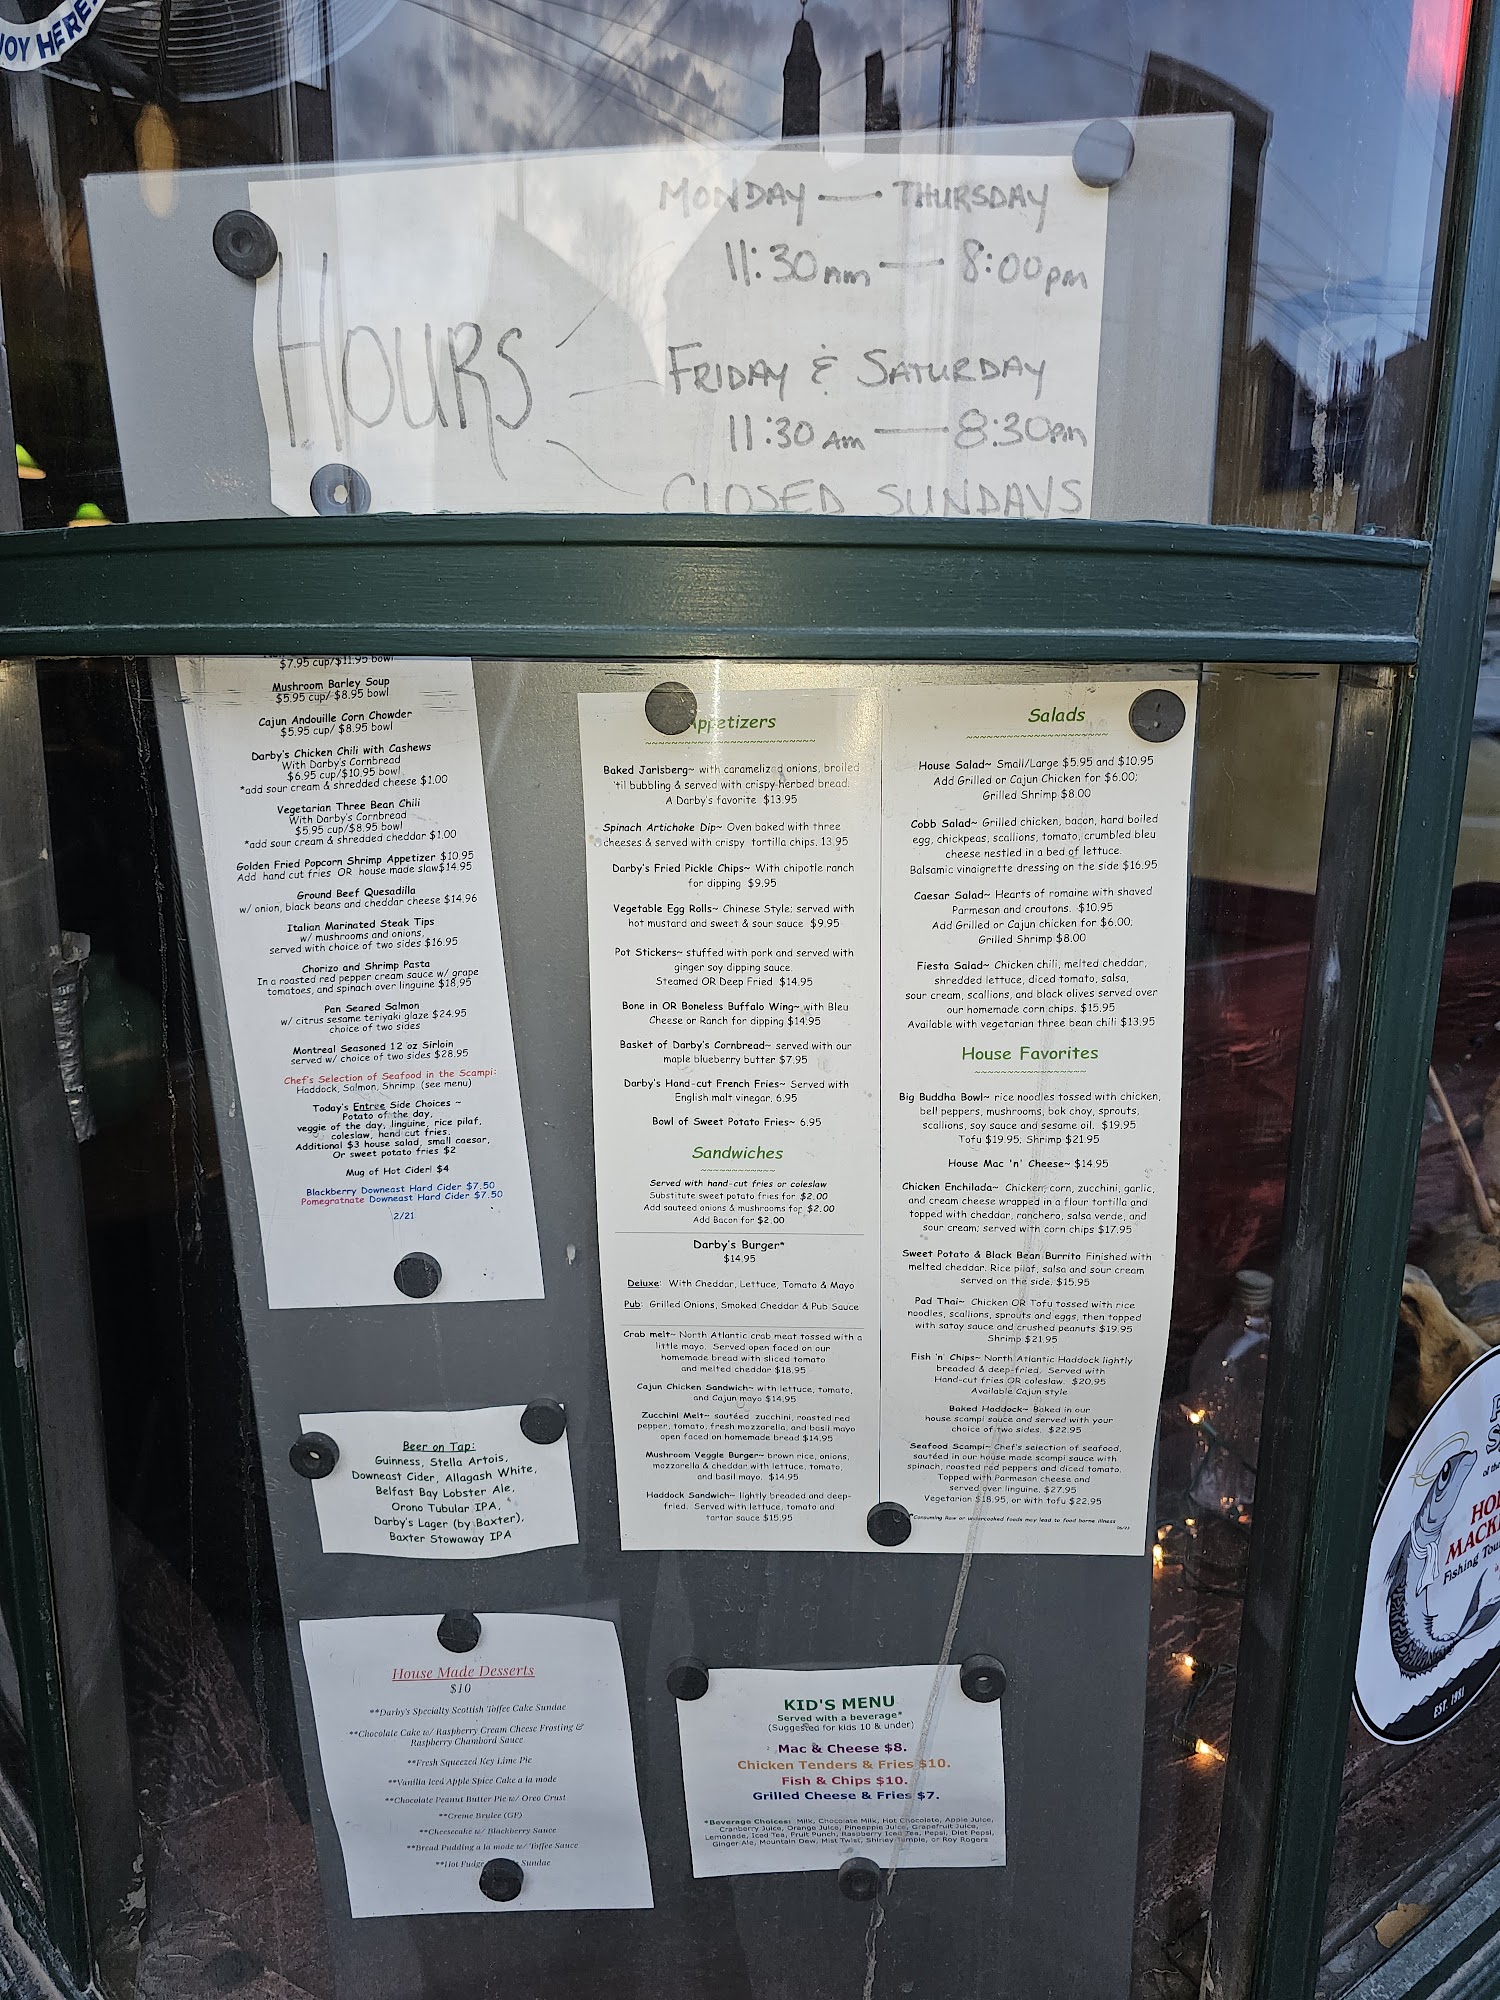 JOY HERE!
MONDAY — THURSDAY
11:30am — 8:00pm
HOURS
FRIDAY & SATURDAY
11:30 Am — 8:30pm
CLOSED SUNDAYS
$7.95 cup/$11.95 bowl
Mushroom Barley Soup
$5.95 cup/ $8.95 bowl
Cajun Andouille Corn Chowder
$5.95 cup/ $8.95 bowl
Darby's Chicken Chili with Cashews
With Darby's Cornbread
$6.95 cup/$10.95 bowl
*add sour cream & shredded cheese $1.00
Vegetarian Three Bean Chili
With Darby's Cornbread
$5.95 cup/$8.95 bowl
*add sour cream & shredded cheddar $1.00
Golden Fried Popcorn Shrimp Appetizer $10.95
Add hand cut fries OR house made slaw$14.95
Ground Beef Quesadilla
w/ onion, black beans and cheddar cheese $14.96
Italian Marinated Steak Tips
w/ mushrooms and onions,
served with choice of two sides $16.95
Chorizo and Shrimp Pasta
In a roasted red pepper cream sauce w/ grape
tomatoes, and spinach over linguine $18.95
Pan Seared Salmon
w/ citrus sesame teriyaki glaze $24.95
choice of two sides
Montreal Seasoned 12 oz Sirloin
served w/ choice of two sides $28.95
Chef's Selection of Seafood in the Scampi:
Haddock, Salmon, Shrimp (see menu)
Today's Entree Side Choices ~
Potato of the day,
veggie of the day, linguine, rice pilaf,
coleslaw, hand cut fries
Additional $3 house salad, small caesar,
Or sweet potato fries $2
Mug of Hot Cider! $4
Blackberry Downeast Hard Cider $7.50
Pomegratnate Downeast Hard Cider $7.50
2/21
Appetizers
Baked Jarlsberg~ with caramelized onions, broiled
'til bubbling & served with crispy herbed bread.
A Darby's favorite $13.95
Spinach Artichoke Dip~ Oven baked with three
cheeses & served with crispy tortilla chips. 13.95
Darby's Fried Pickle Chips~ With chipotle ranch
for dipping $9.95
Vegetable Egg Rolls~ Chinese Style; served with
hot mustard and sweet & sour sauce $9.95
Pot Stickers~ stuffed with pork and served with
ginger soy dipping sauce.
Steamed OR Deep Fried $14.95
Bone in OR Boneless Buffalo Wing~ with Bleu
Cheese or Ranch for dipping $14.95
Basket of Darby's Cornbread~ served with our
maple blueberry butter $7.95
Darby's Hand-cut French Fries~ Served with
English malt vinegar. 6.95
Bowl of Sweet Potato Fries~ 6.95
Sandwiches
Served with hand-cut fries or coleslaw
Substitute sweet potato fries for $2.00
Add sauteed onions & mushrooms for $2.00
Add Bacon for $2.00
Darby's Burger*
$14.95
Deluxe: With Cheddar, Lettuce, Tomato & Mayo
Pub: Grilled Onions, Smoked Cheddar & Pub Sauce
Crab melt~ North Atlantic crab meat tossed with a
little mayo. Served open faced on our
homemade bread with sliced tomato
and melted cheddar $18.95
Cajun Chicken Sandwich~ with lettuce, tomato,
and Cajun mayo $14.95
Zucchini Melt~ sautéed zucchini, roasted red
pepper, tomato, fresh mozzarella, and basil mayo
open faced on homemade bread $14.95
Mushroom Veggie Burger~ brown rice, onions,
mozzarella & cheddar with lettuce, tomato,
and basil mayo. $14.95
Haddock Sandwich~ lightly breaded and deep-
fried. Served with lettuce, tomato and
tartar sauce $15.95
Salads
House Salad~ Small/Large $5.95 and $10.95
Add Grilled or Cajun Chicken for $6.00;
Grilled Shrimp $8.00
Cobb Salad~ Grilled chicken, bacon, hard boiled
egg, chickpeas, scallions, tomato, crumbled bleu
cheese nestled in a bed of lettuce.
Balsamic vinaigrette dressing on the side $16.95
Caesar Salad~ Hearts of romaine with shaved
Parmesan and croutons. $10.95
Add Grilled or Cajun chicken for $6.00;
Grilled Shrimp $8.00
Fiesta Salad~ Chicken chili, melted cheddar,
shredded lettuce, diced tomato, salsa,
sour cream, scallions, and black olives served over
our homemade corn chips. $15.95
Available with vegetarian three bean chili $13.95
House Favorites
Big Buddha Bowl~ rice noodles tossed with chicken,
bell peppers, mushrooms, bok choy, sprouts,
scallions, soy sauce and sesame oil. $19.95
Tofu $19.95; Shrimp $21.95
House Mac 'n' Cheese~ $14.95
Chicken Enchilada~ Chicken, corn, zucchini, garlic,
and cream cheese wrapped in a flour tortilla and
topped with cheddar, ranchero, salsa verde, and
sour cream; served with corn chips $17.95
Sweet Potato & Black Bean Burrito Finished with
melted cheddar. Rice pilaf, salsa and sour cream
served on the side. $15.95
Pad Thai~ Chicken OR Tofu tossed with rice
noodles, scallions, sprouts and eggs, then topped
with satay sauce and crushed peanuts $19.95
Shrimp $21.95
Fish 'n' Chips~ North Atlantic Haddock lightly
breaded & deep-fried. Served with
Hand-cut fries OR coleslaw. $20.95
Available Cajun style
Baked Haddock~ Baked in our
house scampi sauce and served with your
choice of two sides. $22.95
Seafood Scampi~ Chef's selection of seafood,
sautéed in our house made scampi sauce with
spinach, roasted red peppers and diced tomato.
Topped with Parmesan cheese and
served over linguine. $27.95
Vegetarian $18.95, or with tofu $22.95
*Consuming Raw or undercooked foods may lead to food borne illness
Beer on Tap:
Guinness, Stella Artois,
Downeast Cider, Allagash White,
Belfast Bay Lobster Ale,
Orono Tubular IPA,
Darby's Lager (by Baxter),
Baxter Stowaway IPA
House Made Desserts
$10
**Darby's Specialty Scottish Toffee Cake Sundae
**Chocolate Cake w/ Raspberry Cream Cheese Frosting &
Raspberry Chambord Sauce
**Fresh Squeezed Key Lime Pie
**Vanilla Iced Apple Spice Cake a la mode
**Chocolate Peanut Butter Pie w/ Oreo Crust
**Creme Brulee (GF)
**Cheesecake w/ Blackberry Sauce
**Bread Pudding a la mode w/ Toffee Sauce
**Hot Fudge Sundae
KID'S MENU
Served with a beverage*
(Suggested for kids 10 & under)
Mac & Cheese $8.
Chicken Tenders & Fries $10.
Fish & Chips $10.
Grilled Cheese & Fries $7.
*Beverage Choices: Milk, Chocolate Milk, Hot Chocolate, Apple Juice,
Cranberry Juice, Orange Juice, Pineapple Juice, Grapefruit Juice,
Lemonade, Iced Tea, Fruit Punch, Raspberry Iced Tea, Pepsi, Diet Pepsi,
Ginger Ale, Mountain Dew, Mist Twist, Shirley Temple, or Roy Rogers
of the
HOL
MACK
Fishing Tou
EST. 1981